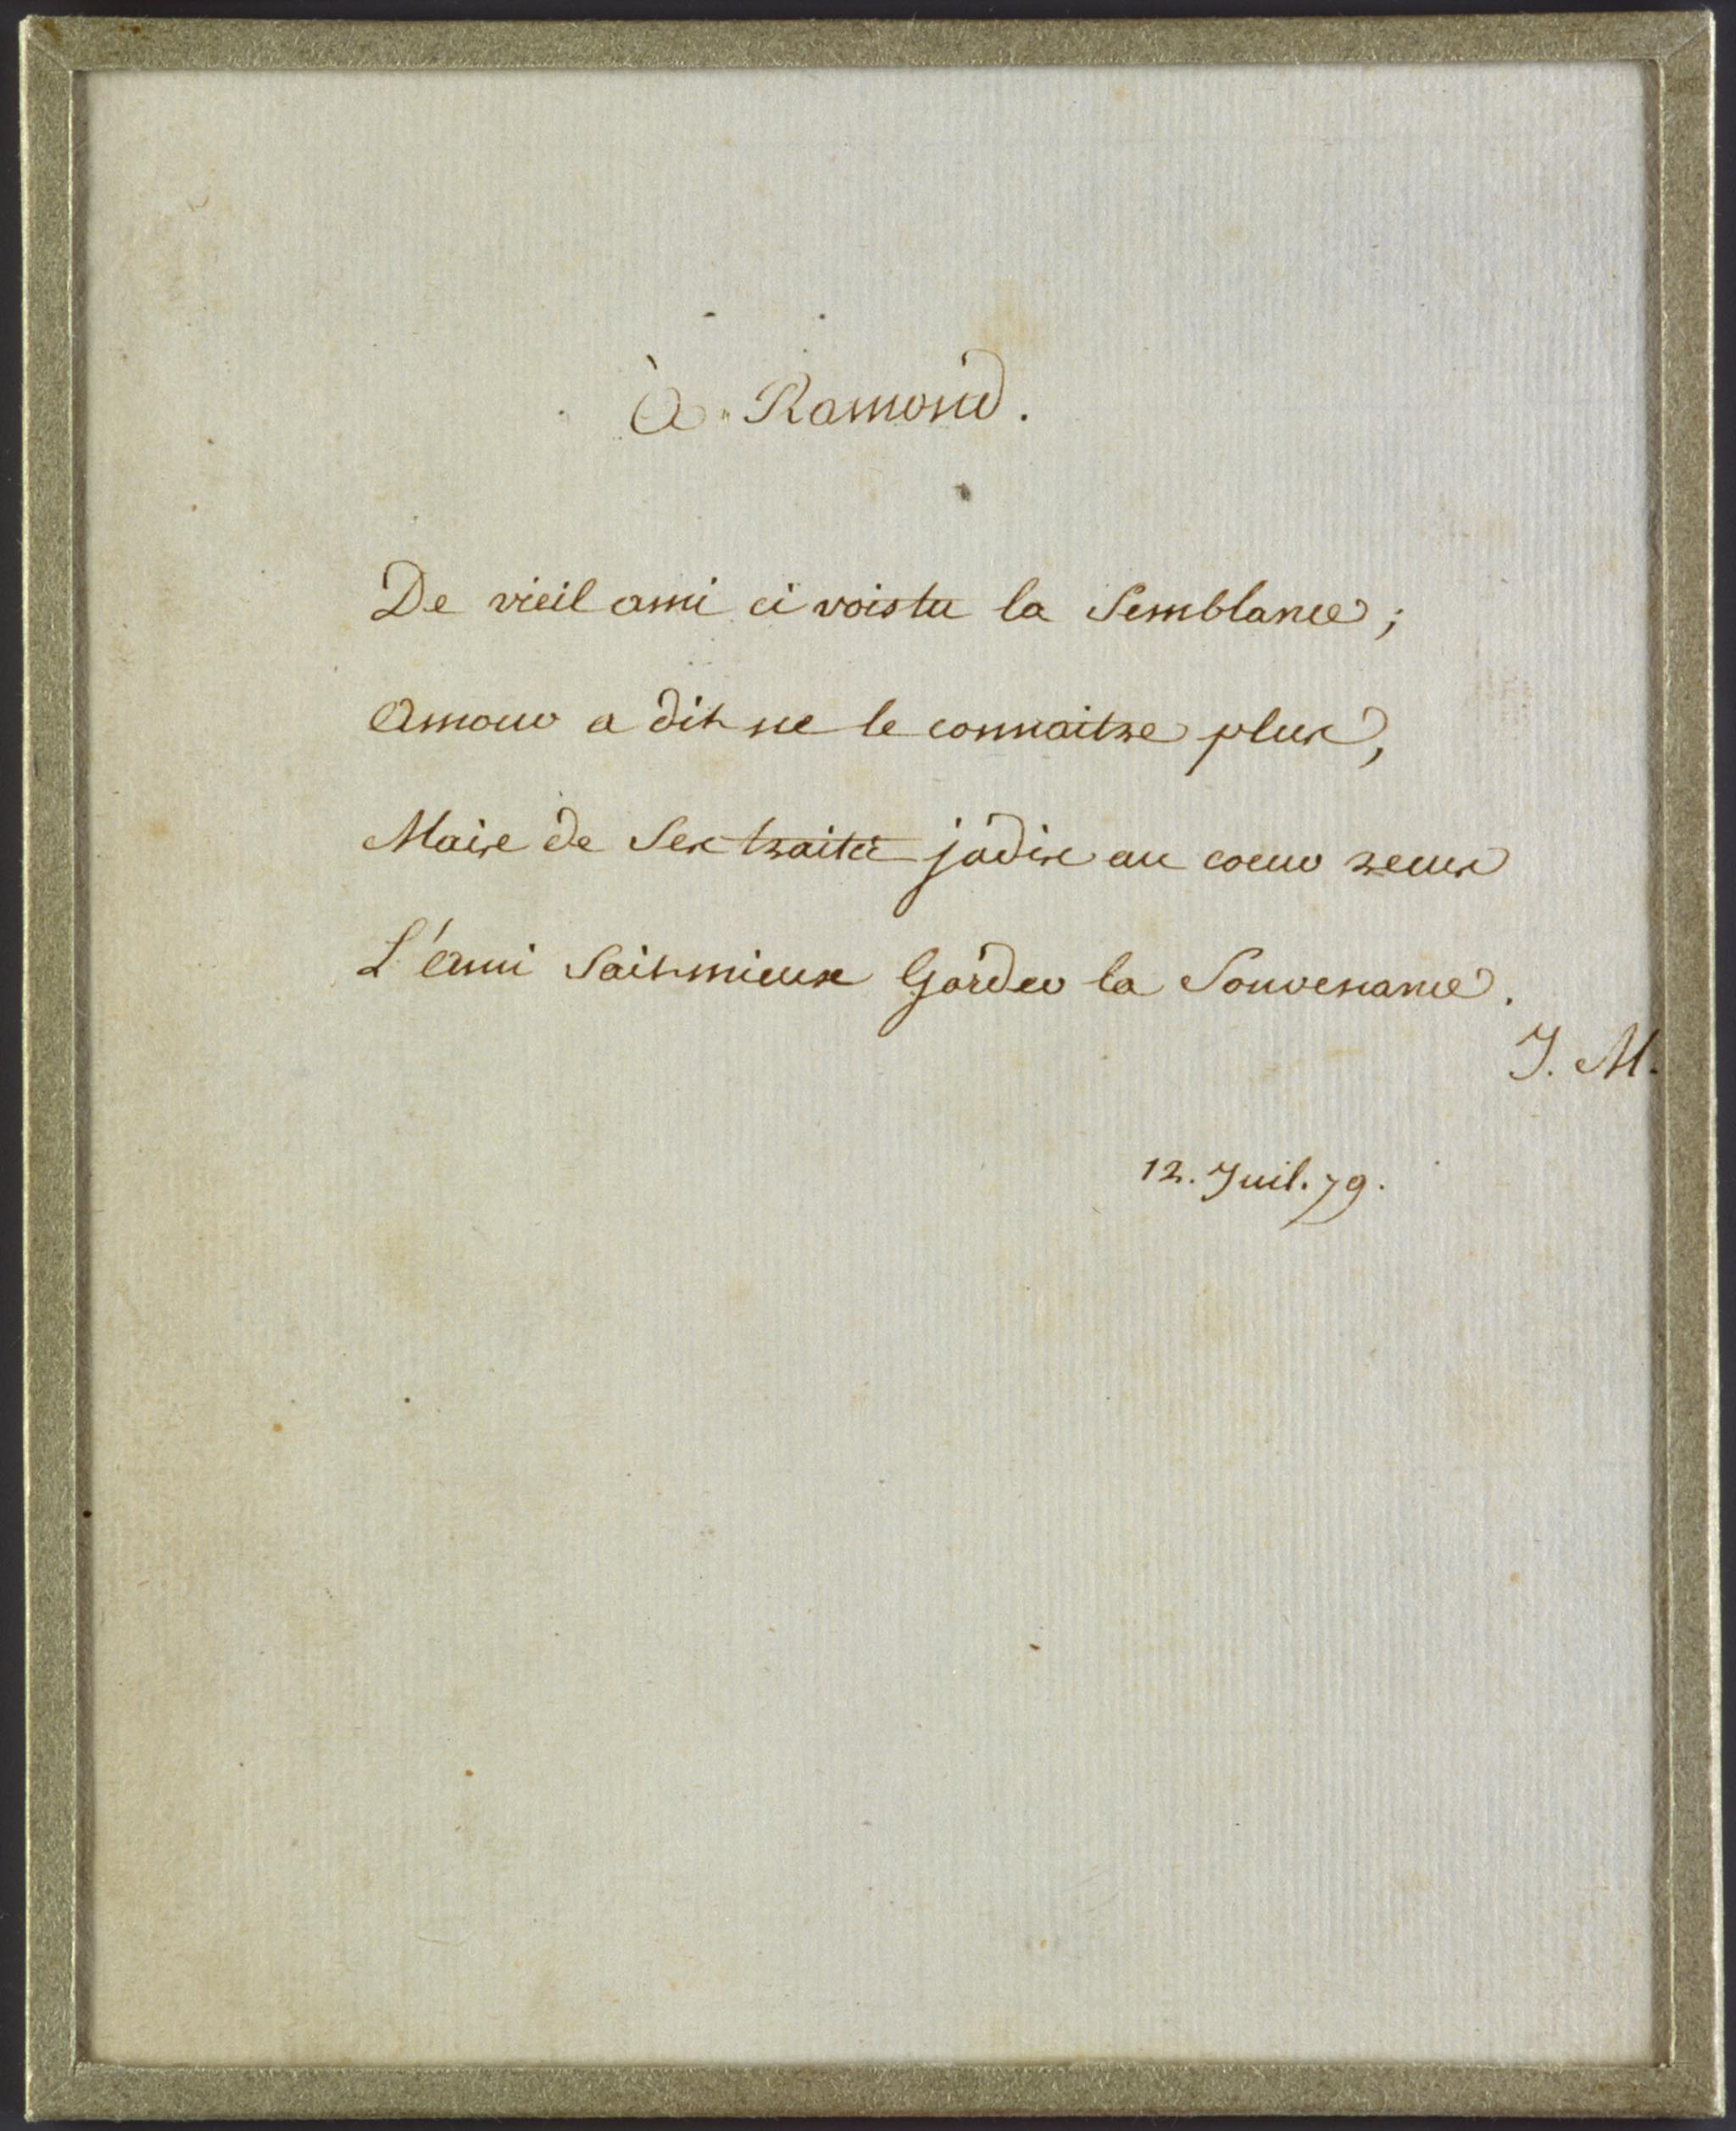 à Ramond.
De vieil ami ci voistu la Semblance;
Amour a dit ne le connaitre plus,
Mais de Ses traits jadis au coeur reçus
L'ami Sait mieux Garder la Souvenance.
J. M.
12. Juil. 79.